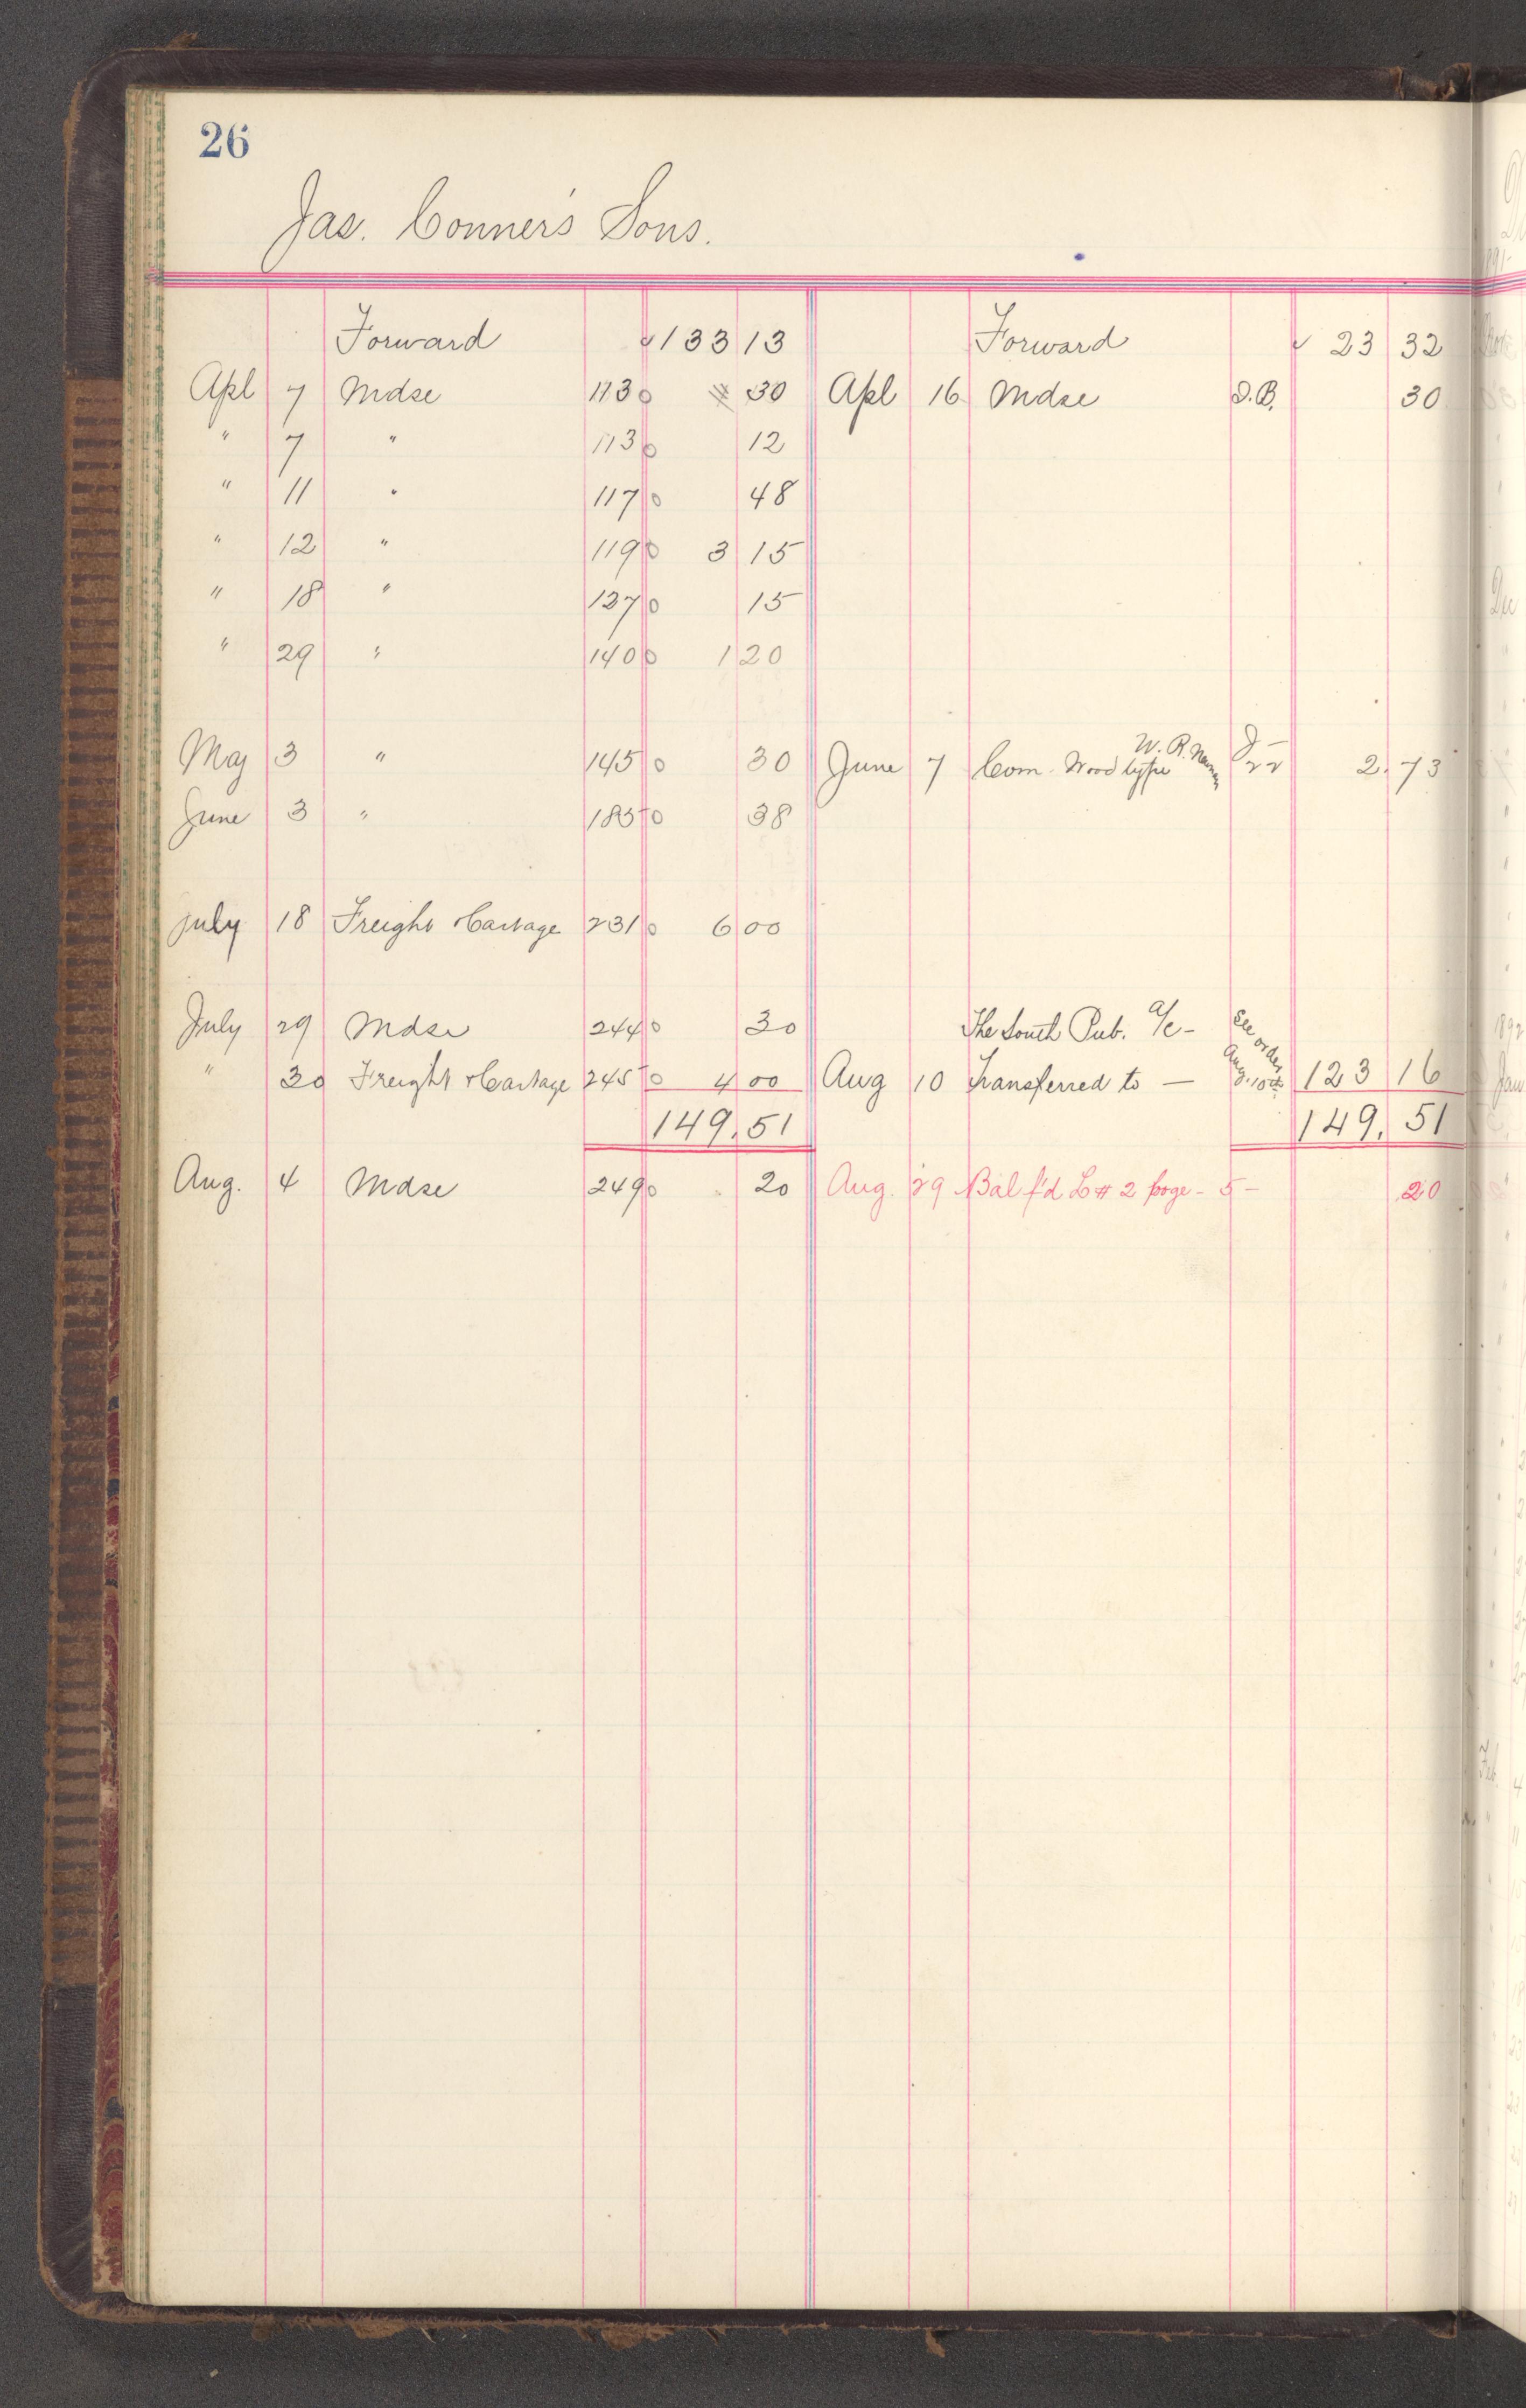 26
Jas. Conner's Sons.
Forward 133 13 Forward 23 32
Apl 7 Mdse 113 30 Apl 16 Mdse D.B. 30
" 7 " 113 12
" 11 " 117 48
" 12 " 119 3 15
" 18 " 127 15
" 29 " 140 1 20
May 3 " 145 30 June 7 Com. Wood type W. R. 2 73
June 3 " 185 38
July 18 Freight & Cartage 231 6 00
July 29 Mdse 244 30 The South Pub. a/c - See order
" 30 Freight & Cartage 245 4 00 Aug 10 Transferred to — Aug. 10th 123 16
149.51 149.51
Aug. 4 Mdse 249 20 Aug. 29 Bal f'd L # 2 page - 5 - 20